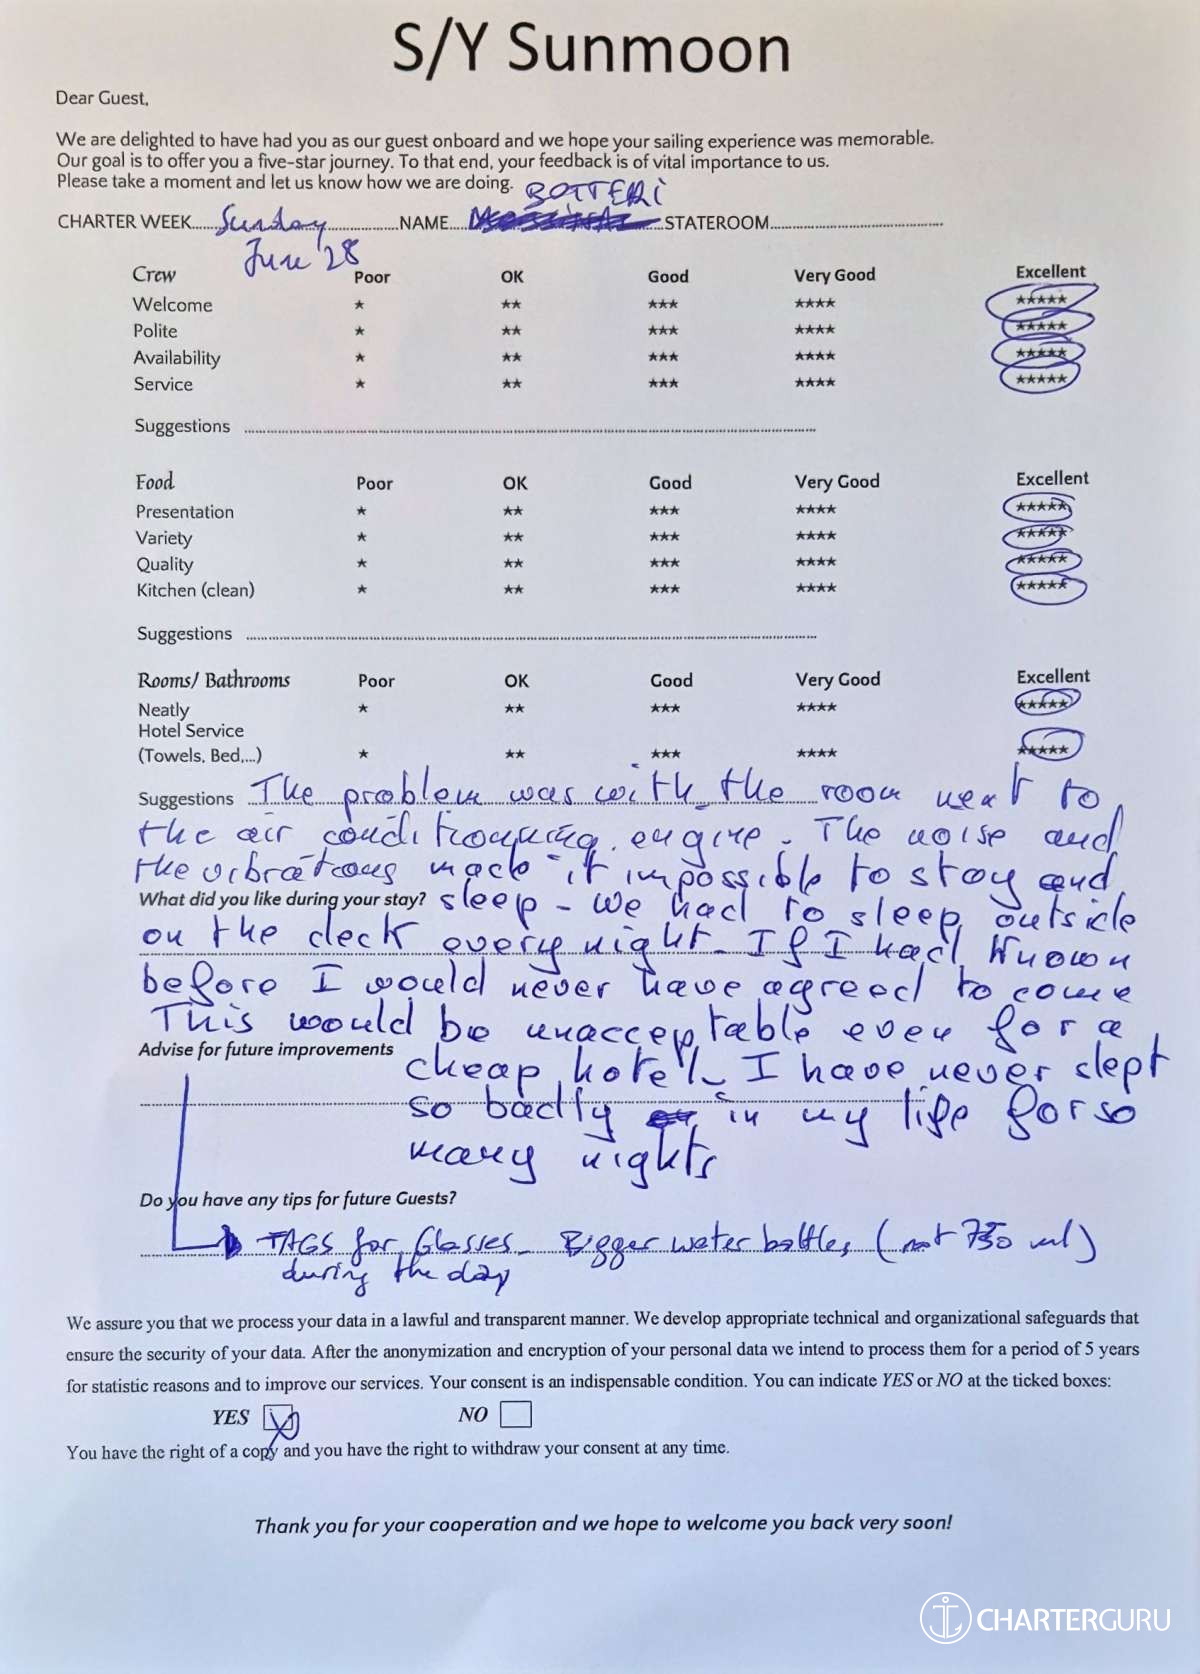 S/Y Sunmoon
Dear Guest,
We are delighted to have had you as our guest onboard and we hope your sailing experience was memorable.
Our goal is to offer you a five-star journey. To that end, your feedback is of vital importance to us.
Please take a moment and let us know how we are doing.
BOTTERI
CHARTER WEEK Sunday NAME STATEROOM
June 28
Crew Poor OK Good Very Good Excellent
Welcome ★ ★★ ★★★ ★★★★ ★★★★★
Polite ★ ★★ ★★★ ★★★★ ★★★★★
Availability ★ ★★ ★★★ ★★★★ ★★★★★
Service ★ ★★ ★★★ ★★★★ ★★★★★
Suggestions
Food Poor OK Good Very Good Excellent
Presentation ★ ★★ ★★★ ★★★★ ★★★★★
Variety ★ ★★ ★★★ ★★★★ ★★★★★
Quality ★ ★★ ★★★ ★★★★ ★★★★★
Kitchen (clean) ★ ★★ ★★★ ★★★★ ★★★★★
Suggestions
Rooms/ Bathrooms Poor OK Good Very Good Excellent
Neatly ★ ★★ ★★★ ★★★★ ★★★★★
Hotel Service
(Towels, Bed,...) ★ ★★ ★★★ ★★★★ ★★★★★
Suggestions The problem was with the room next to
the air conditionning engine. The noise and
the vibrations made it impossible to stay and
What did you like during your stay? sleep - We had to sleep outside
on the deck every night. If I had known
before I would never have agreed to come
This would be unacceptable even for a
Advise for future improvements cheap hotel. I have never slept
so badly in my life for so
many nights
Do you have any tips for future Guests?
TAGS for Glasses - Bigger water bottles (not 750 ml)
during the day
We assure you that we process your data in a lawful and transparent manner. We develop appropriate technical and organizational safeguards that
ensure the security of your data. After the anonymization and encryption of your personal data we intend to process them for a period of 5 years
for statistic reasons and to improve our services. Your consent is an indispensable condition. You can indicate YES or NO at the ticked boxes:
YES NO
You have the right of a copy and you have the right to withdraw your consent at any time.
Thank you for your cooperation and we hope to welcome you back very soon!
CHARTERGURU